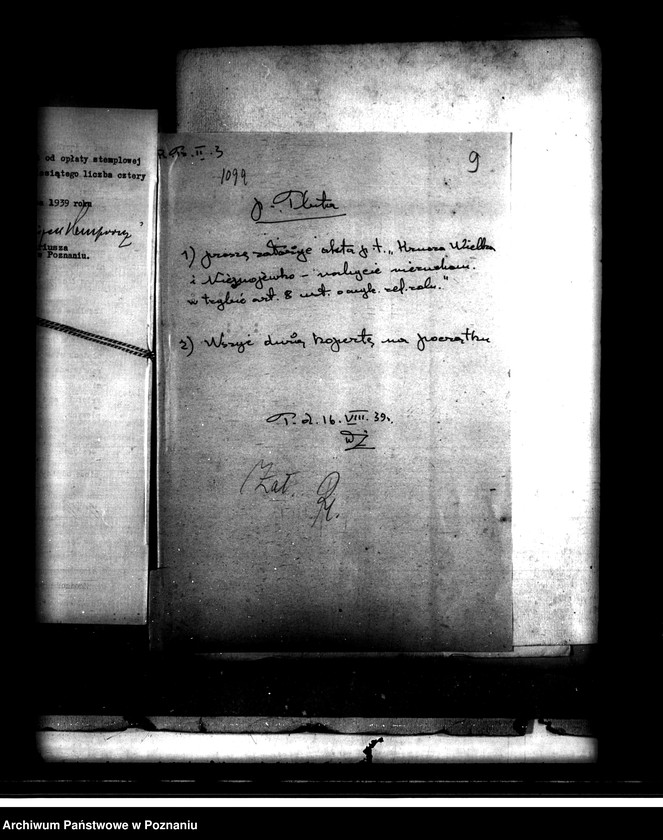 od opłaty stemplowej
siątego liczba cztery
1939 roku
riusza
Poznaniu.
R.B. II. 3
9
1099
p. Pluta
1) proszę założyć akta p.t. „Wielka
i - nabycie nieruchom.
w trybie art. 8 ust. o wyk. ref. roln."
2) Wszyć dużą kopertę na początku
P. d. 16. VIII. 39.
Zał.
Archiwum Państwowe w Poznaniu